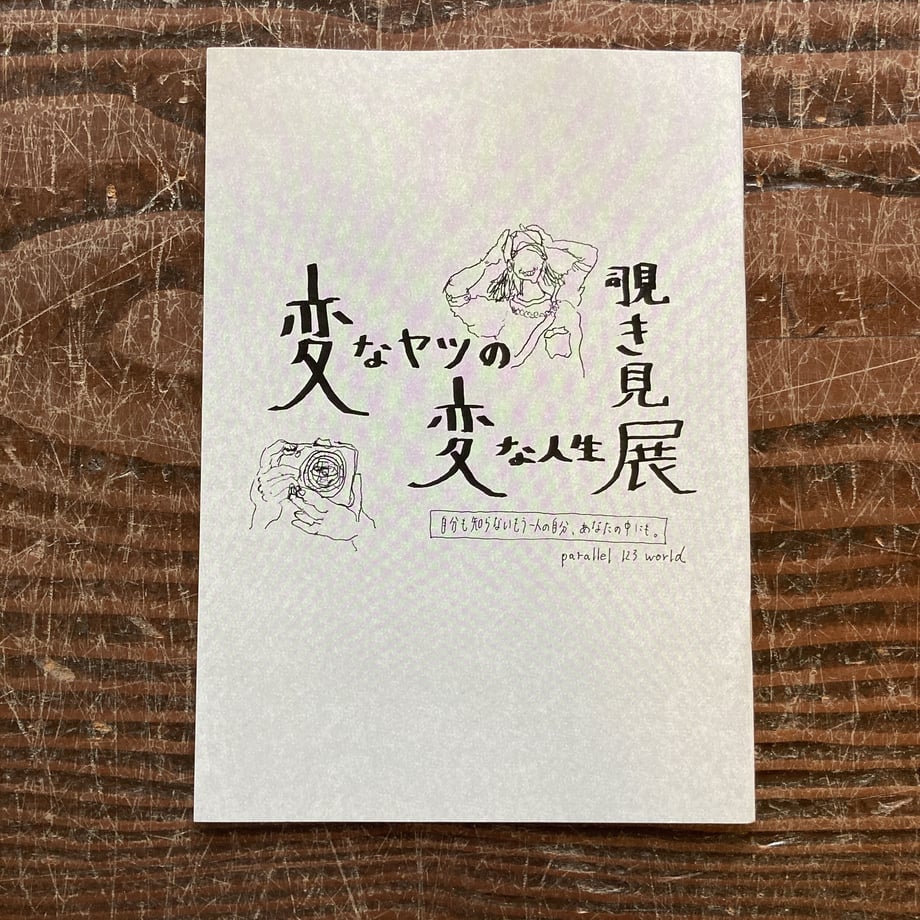 変なヤツの
変な人生
覗き見展
自分も知らないもう一人の自分、あなたの中にも。
parallel 123 world